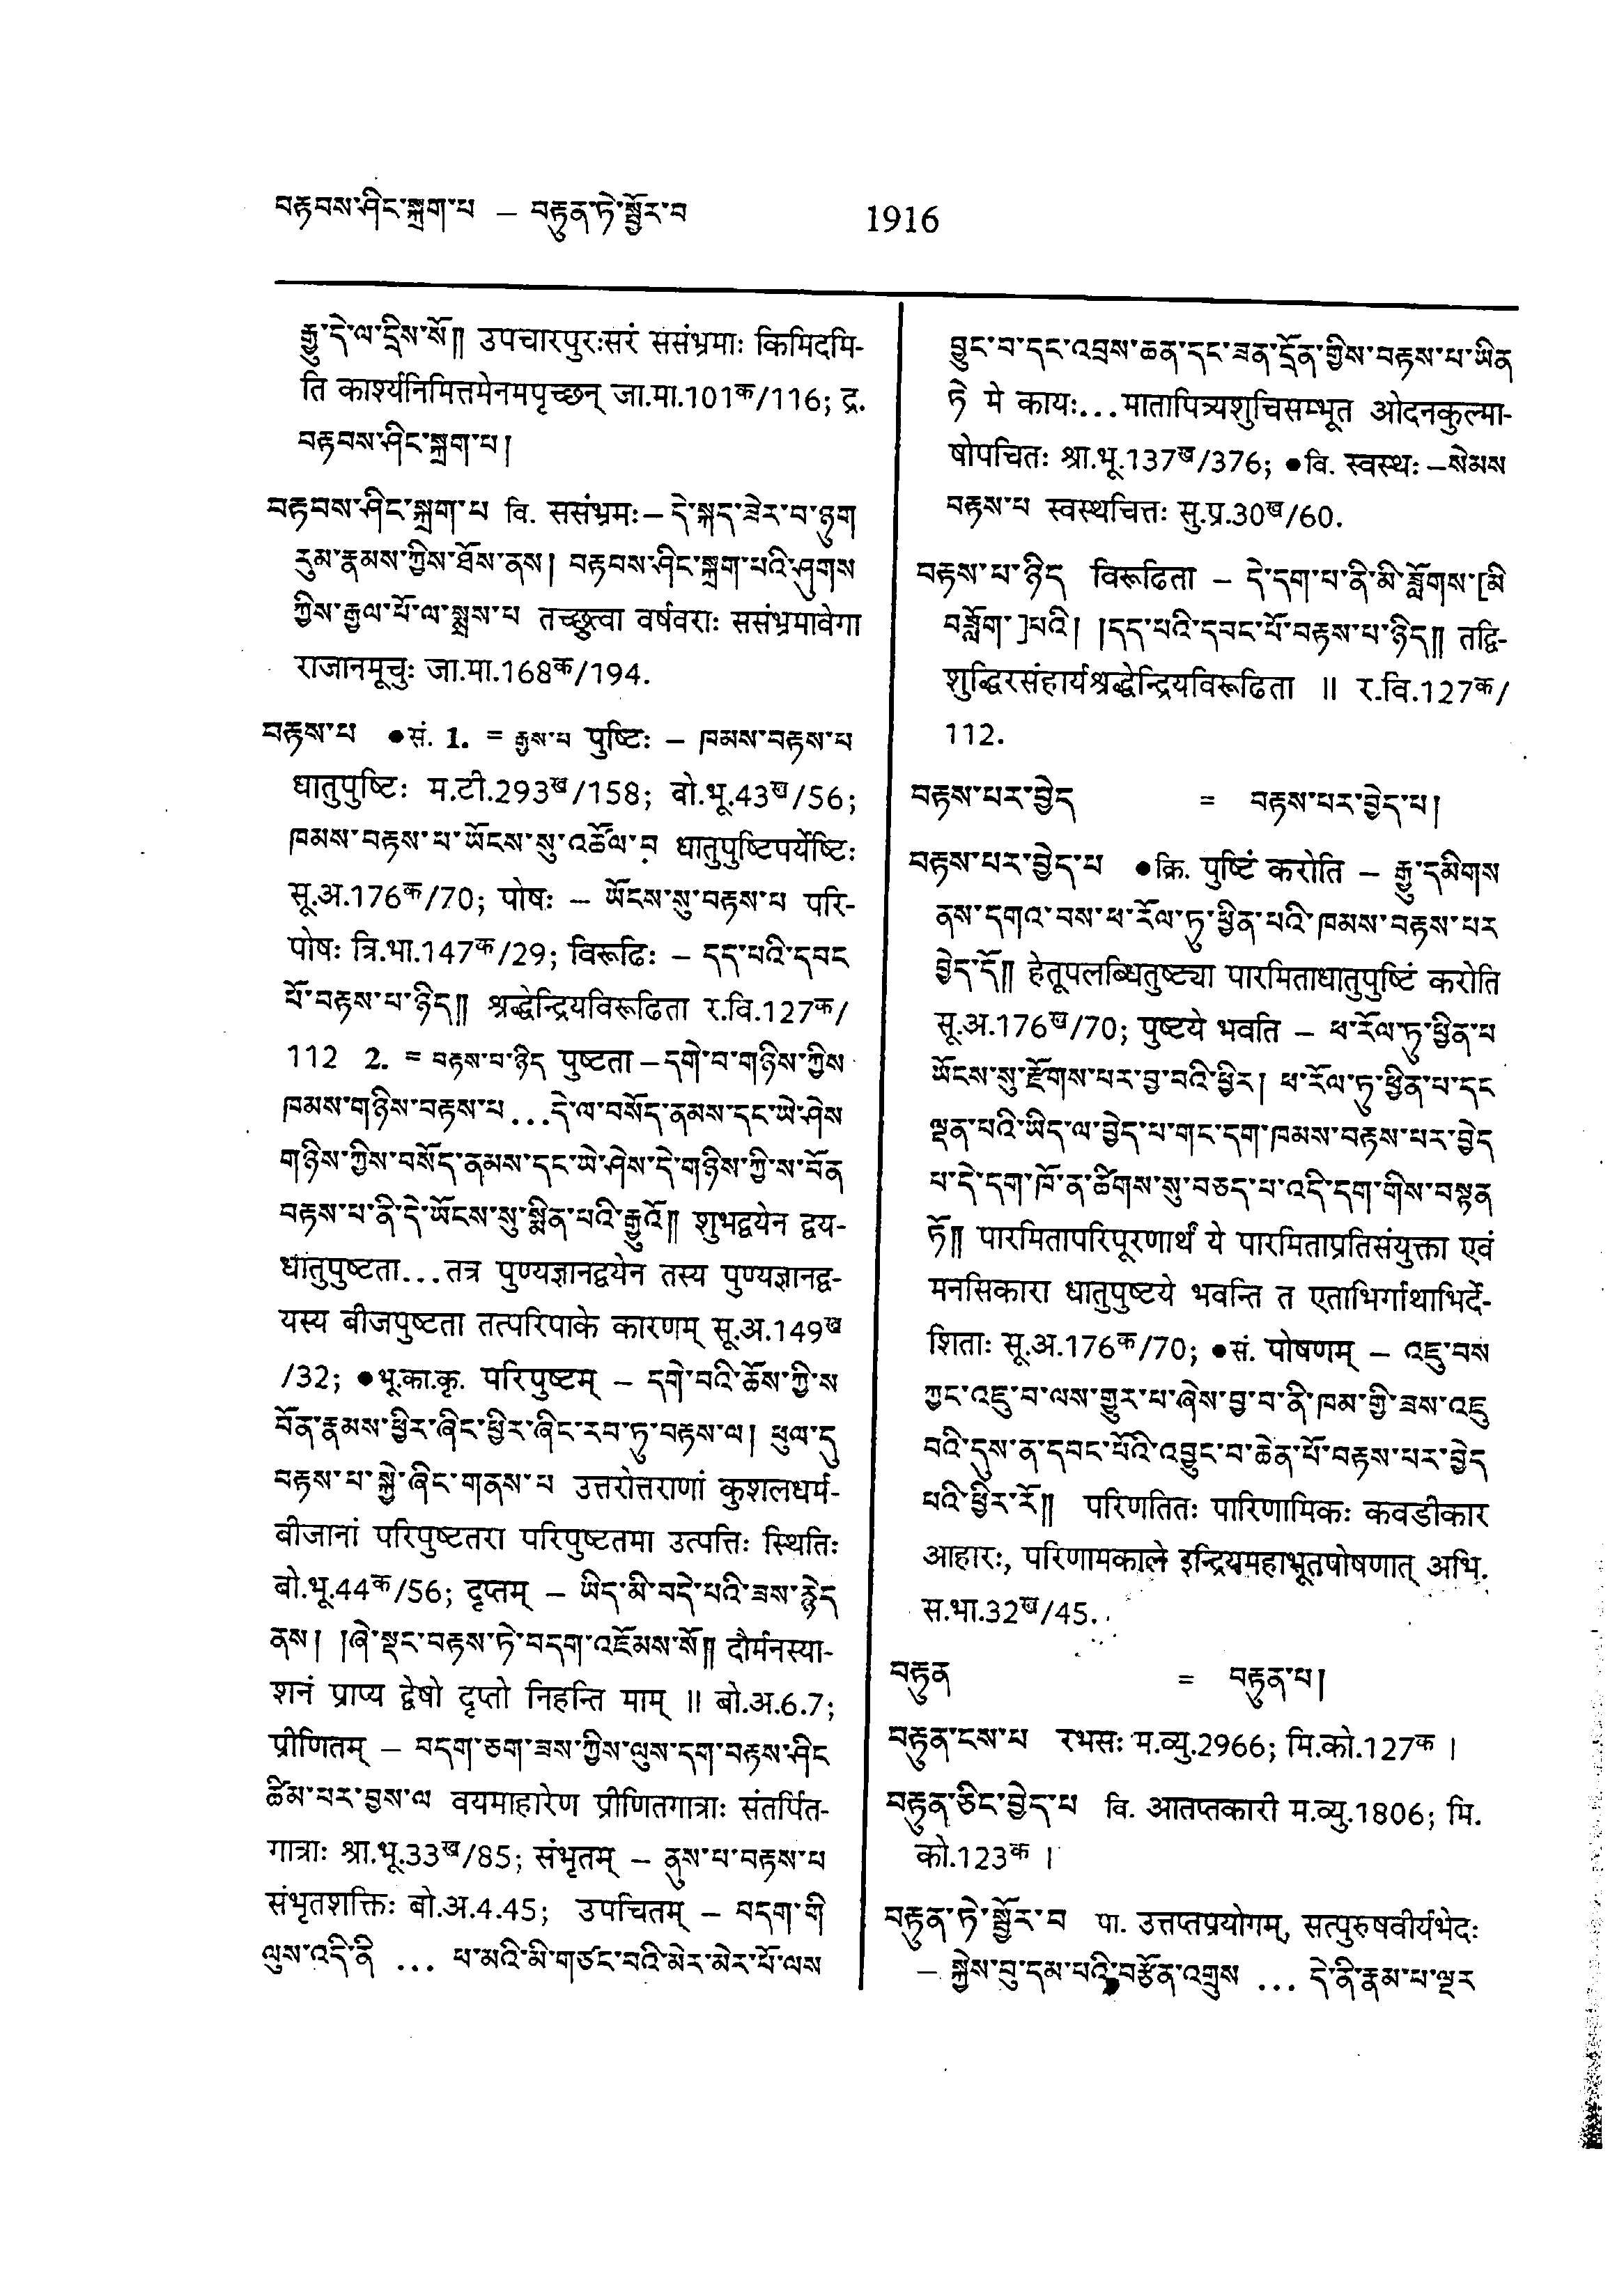 བརྟབས་ཤིང་སྐྲག་པ – བརྟུན་ཏེ་སྦྱོར་བ 1916
རྒྱུ་དེ་ལ་དྲིས་སོ༎ उपचारपुरःसरं ससंभ्रमाः किमिदमि-
ति कार्श्यनिमित्तमेनमपृच्छन् जा.मा.101क/116; द्र.
བརྟབས་ཤིང་སྐྲག་པ།
བརྟབས་ཤིང་སྐྲག་པ वि. ससंभ्रमः – དེ་སྐད་ཟེར་བ་ཉུག
རུམ་རྣམས་ཀྱིས་ཐོས་ནས། བརྟབས་ཤིང་སྐྲག་པའི་ཤུགས
ཀྱིས་རྒྱལ་པོ་ལ་སྨྲས་པ तच्छ्रुत्वा वर्षवराः ससंभ्रमावेगा
राजानमूचुः जा.मा.168क/194.
བརྟས་པ ●सं. 1. = རྒྱས་པ पुष्टिः – ཁམས་བརྟས་པ
धातुपुष्टिः म.टी.293ख/158; बो.भू.43ख/56;
ཁམས་བརྟས་པ་ཡོངས་སུ་འཚོལ་བ धातुपुष्टिपर्येष्टिः
सू.अ.176क/70; पोषः – ཡོངས་སུ་བརྟས་པ परि-
पोषः त्रि.भा.147क/29; विरूढिः – དད་པའི་དབང
པོ་བརྟས་པ་ཉིད༎ श्रद्धेन्द्रियविरूढिता र.वि.127क/
112 2. = བརྟས་པ་ཉིད पुष्टता – དགེ་བ་གཉིས་ཀྱིས
ཁམས་གཉིས་བརྟས་པ...དེ་ལ་བསོད་ནམས་དང་ཡེ་ཤེས
གཉིས་ཀྱིས་བསོད་ནམས་དང་ཡེ་ཤེས་དེ་གཉིས་ཀྱི་ས་བོན
བརྟས་པ་ནི་དེ་ཡོངས་སུ་སྨིན་པའི་རྒྱུའོ༎ शुभद्वयेन द्वय-
धातुपुष्टता...तत्र पुण्यज्ञानद्वयेन तस्य पुण्यज्ञानद्व-
यस्य बीजपुष्टता तत्परिपाके कारणम् सू.अ.149ख
/32; ●भू.का.कृ. परिपुष्टम् – དགེ་བའི་ཆོས་ཀྱི་ས
བོན་རྣམས་ཕྱིར་ཞིང་ཕྱིར་ཞིང་རབ་ཏུ་བརྟས་ལ། ཕུལ་དུ
བརྟས་པ་སྐྱེ་ཞིང་གནས་པ उत्तरोत्तराणां कुशलधर्म-
बीजानां परिपुष्टतरा परिपुष्टतमा उत्पत्तिः स्थितिः
बो.भू.44क/56; दृप्तम् – ཡིད་མི་བདེ་པའི་ཟས་རྙེད
ནས། །ཞེ་སྡང་བརྟས་ཏེ་བདག་འཇོམས་སོ༎ दौर्मनस्या-
शनं प्राप्य द्वेषो दृप्तो निहन्ति माम् ॥ बो.अ.6.7;
प्रीणितम् – བདག་ཅག་ཟས་ཀྱིས་ལུས་དག་བརྟས་ཤིང
ཚིམ་པར་བྱས་ལ वयमाहारेण प्रीणितगात्राः संतर्पित-
गात्राः श्रा.भू.33ख/85; संभृतम् – ནུས་པ་བརྟས་པ
संभृतशक्तिः बो.अ.4.45; उपचितम् – བདག་གི
ལུས་འདི་ནི ... ཕ་མའི་མི་གཙང་བའི་མེར་མེར་པོ་ལས
བྱུང་བ་དང་འབྲས་ཆན་དང་ཟན་དྲོན་གྱིས་བརྟས་པ་ཡིན
ཏེ मे कायः...मातापित्र्यशुचिसम्भूत ओदनकुल्मा-
षोपचितः श्रा.भू.137ख/376; ●वि. स्वस्थः – སེམས
བརྟས་པ स्वस्थचित्तः सु.प्र.30ख/60.
བརྟས་པ་ཉིད विरूढिता – དེ་དག་པ་ནི་མི་ཟློགས་[མི
བཟློག་]པའི། །དད་པའི་དབང་པོ་བརྟས་པ་ཉིད༎ तद्वि-
शुद्धिरसंहार्यश्रद्धेन्द्रियविरूढिता ॥ र.वि.127क/
112.
བརྟས་པར་བྱེད = བརྟས་པར་བྱེད་པ།
བརྟས་པར་བྱེད་པ ●क्रि. पुष्टिं करोति – རྒྱུ་དམིགས
ནས་དགའ་བས་ཕ་རོལ་ཏུ་ཕྱིན་པའི་ཁམས་བརྟས་པར
བྱེད་དོ༎ हेतूपलब्धितुष्ट्या पारमिताधातुपुष्टिं करोति
सू.अ.176ख/70; पुष्टये भवति – ཕ་རོལ་ཏུ་ཕྱིན་པ
ཡོངས་སུ་རྫོགས་པར་བྱ་བའི་ཕྱིར། ཕ་རོལ་ཏུ་ཕྱིན་པ་དང
ལྡན་པའི་ཡིད་ལ་བྱེད་པ་གང་དག་ཁམས་བརྟས་པར་བྱེད
པ་དེ་དག་ཁོ་ན་ཚིགས་སུ་བཅད་པ་འདི་དག་གིས་བསྟན
ཏོ༎ पारमितापरिपूरणार्थं ये पारमिताप्रतिसंयुक्ता एवं
मनसिकारा धातुपुष्टये भवन्ति त एताभिर्गाथाभिर्दे-
शिताः सू.अ.176क/70; ●सं. पोषणम् – འཇུ་བས
ཀྱང་འཇུ་བ་ལས་གྱུར་པ་ཞེས་བྱ་བ་ནི་ཁམ་གྱི་ཟས་འཇུ
བའི་དུས་ན་དབང་པོའི་འབྱུང་བ་ཆེན་པོ་བརྟས་པར་བྱེད
པའི་ཕྱིར་རོ༎ परिणतितः पारिणामिकः कवडीकार
आहारः, परिणामकाले इन्द्रियमहाभूतपोषणात् अभि.
स.भा.32ख/45.
བརྟུན = བརྟུན་པ།
བརྟུན་ངས་པ रभसः म.व्यु.2966; मि.को.127क ।
བརྟུན་ཅིང་བྱེད་པ वि. आतप्तकारी म.व्यु.1806; मि.
को.123क ।
བརྟུན་ཏེ་སྦྱོར་བ पा. उत्तप्तप्रयोगम्, सत्पुरुषवीर्यभेदः
– སྐྱེས་བུ་དམ་པའི་བརྩོན་འགྲུས ... དེ་ནི་རྣམ་པ་ལྔར